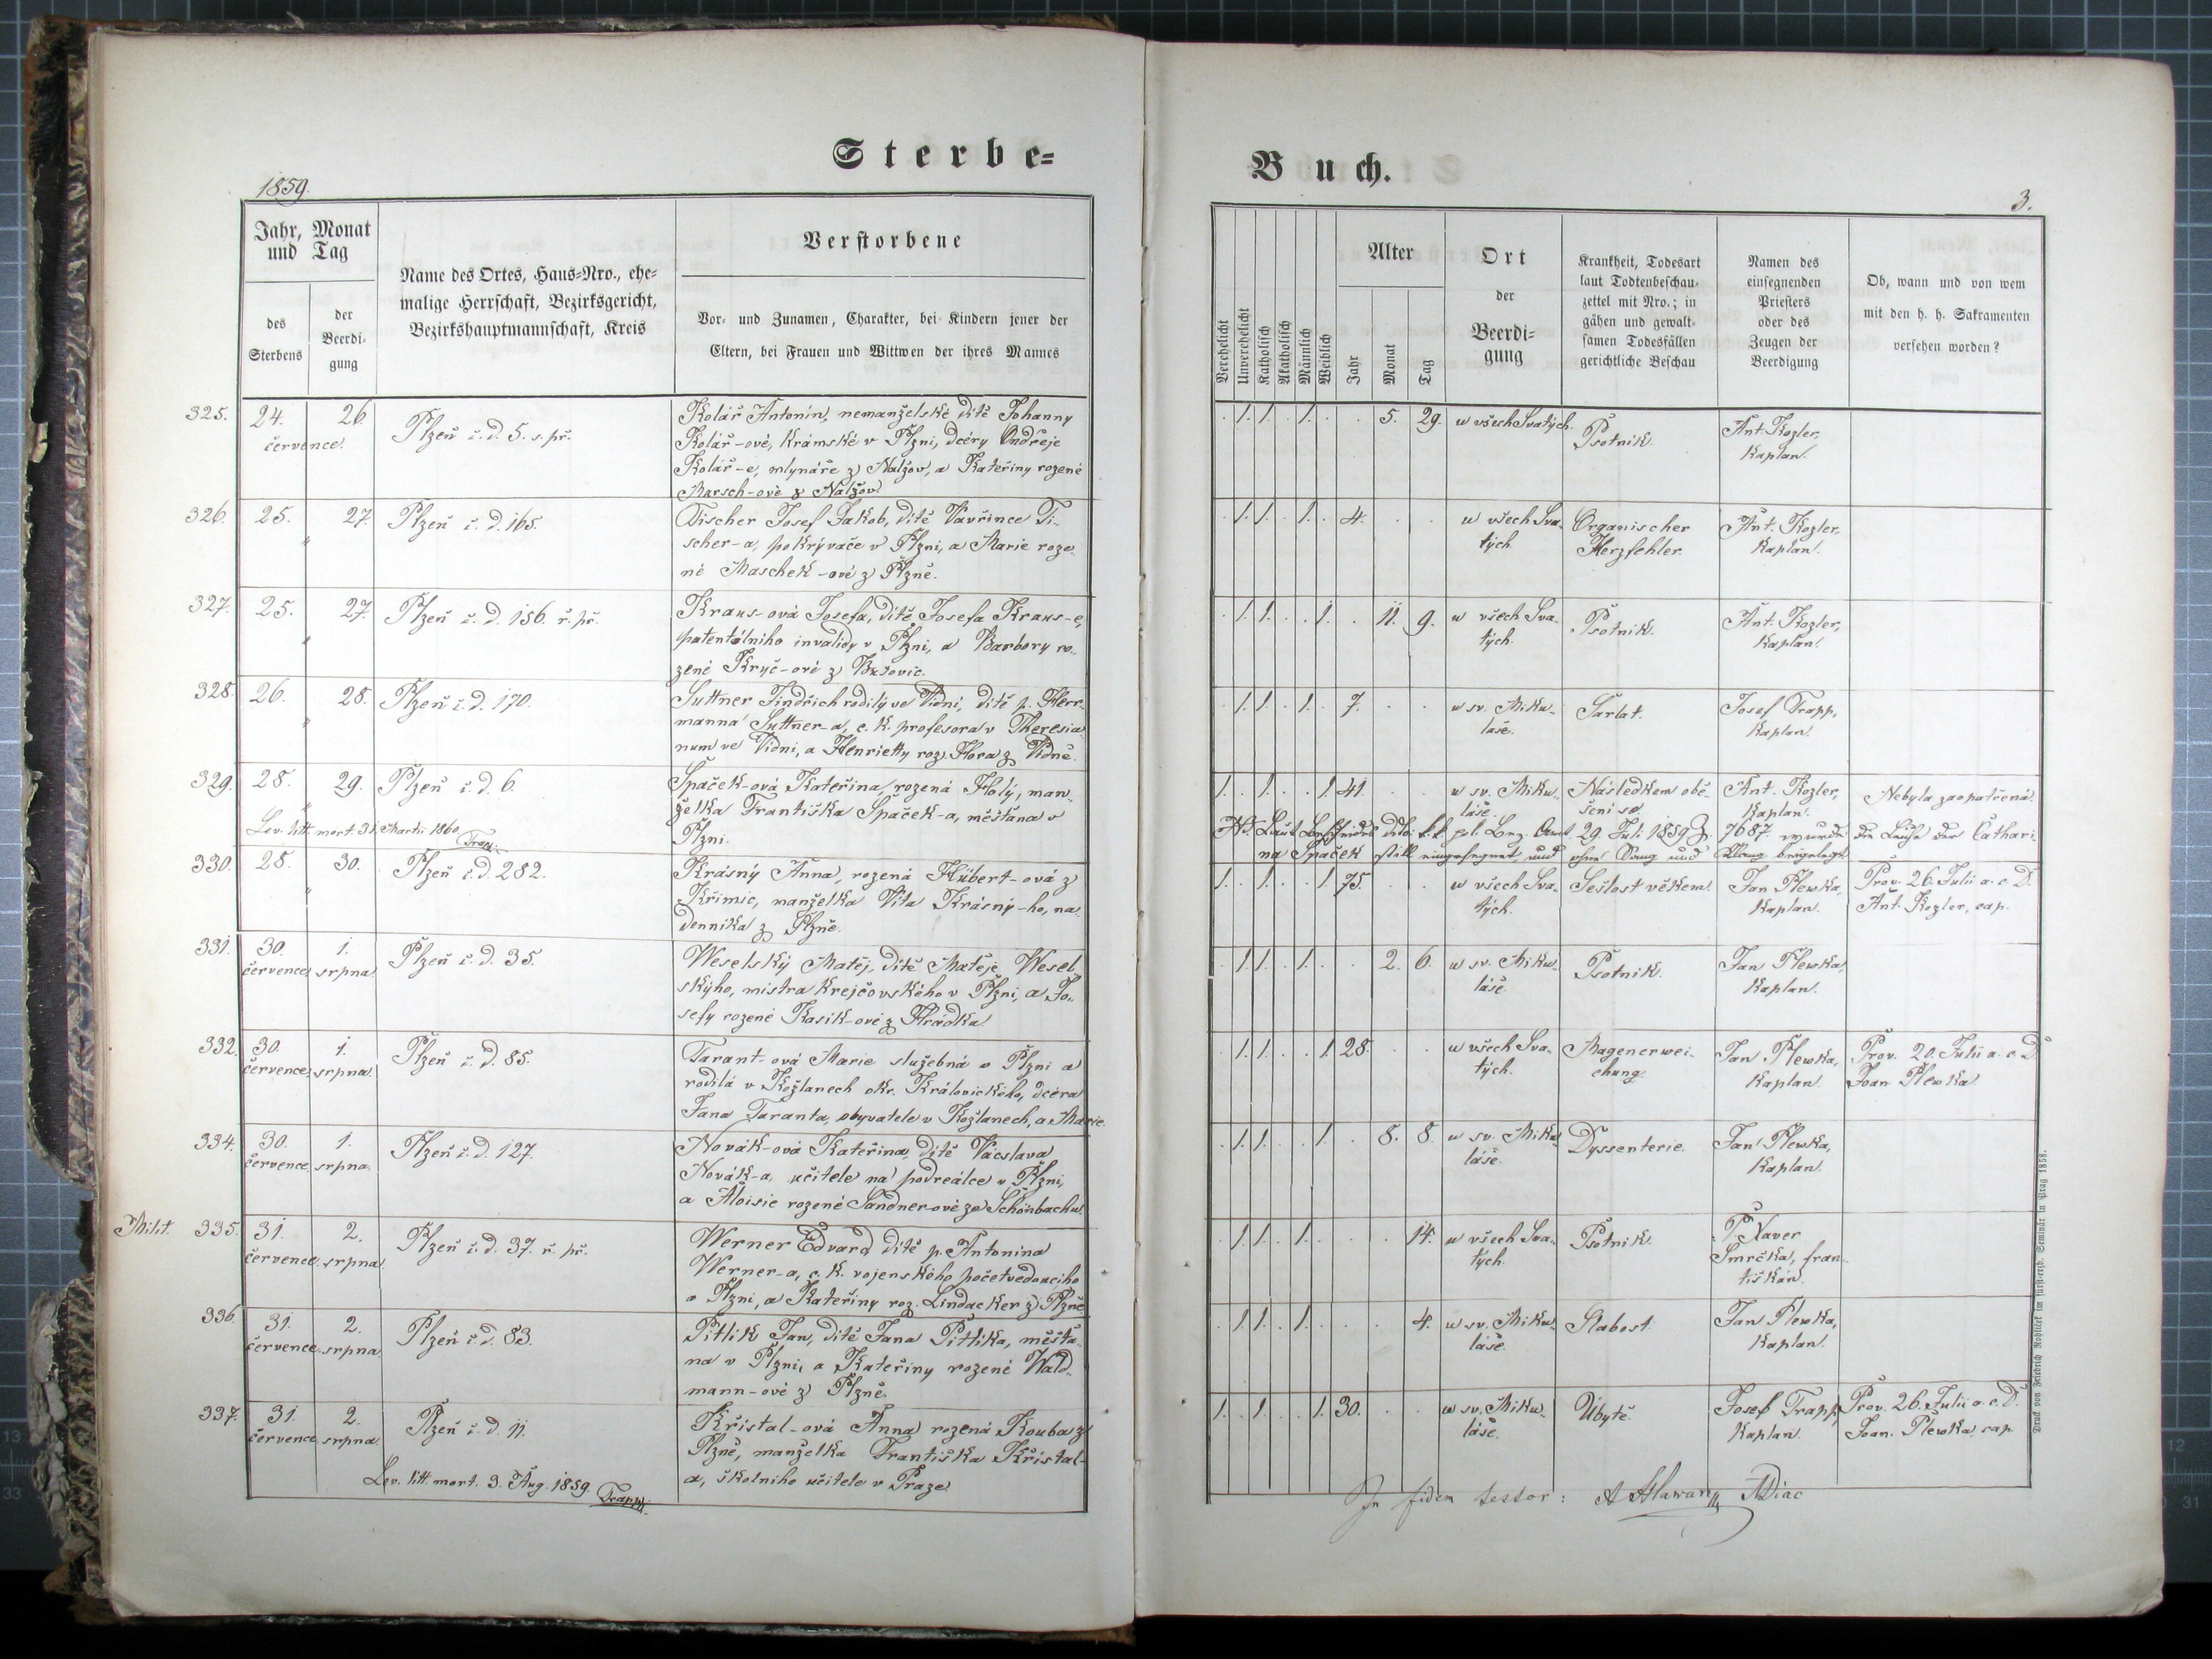 Sterbe=
1859.
Jahr, Monat
und Tag
des
Sterbens
der
Beerdi-
gung
Name des Ortes, Haus=Nro., ehe=
malige Herrschaft, Bezirksgericht,
Bezirkshauptmannschaft, Kreis
Verstorbene
Vor- und Zunamen, Charakter, bei Kindern jener der
Eltern, bei Frauen und Wittwen der ihres Mannes
325. 24. 26.
července.
Plzeň č. d. 5. s. př.
Kolář Antonín, nemanželské dítě Johanny
Kolář-ové, krámské v Plzni, dcéry Ondřeje
Kolář-e, mlynáře z Nalžov, a Kateřiny rozené
Marsch-ové z Nalžov.
326. 25. 27. Plzeň č. d. 165.
"
Fischer Josef Jakob, dítě Vavřince Fi-
scher-a, pokrývače v Plzni, a Marie roze-
né Maschek-ové z Plzně.
327. 25. 27. Plzeň č. d. 156. ř. př.
"
Kraus-ová Josefa, dítě Josefa Kraus-e,
patentálního invalidy v Plzni, a Barbory ro-
zené Kryč-ové z
328. 26. 28. Plzeň č. d. 170.
"
Suttner Jindřich rodilý ve Vídni, dítě p. Herr-
manna Suttner-a, c. k. profesora v Theresia-
num ve Vídni, a Henrietty roz. Hora z Vídně.
329. 28. 29. Plzeň č. d. 6.
"
Špaček-ová Kateřina, rozená Holý, man-
želka Františka Špaček-a, měšťana v
Plzni.
Lev. litt. mort. 31. Martii 1860
Trapp.
330. 28. 30. Plzeň č. d. 282.
"
Krásný Anna, rozená Hübert-ová z
Křimic, manželka Víta Krásný-ho, na-
denníka z Plzně.
331. 30. 1.
července srpna
Plzeň č. d. 35.
Weselský Matěj, dítě Matěje Wesel-
ského, mistra krejčovského v Plzni, a Jo-
sefy rozené Kasik-ové z Hrádku.
332. 30. 1.
července srpna.
Plzeň č. d. 85.
Tarant-ová Marie služebná v Plzni a
rodilá v Kožlanech okr. Královického, dcéra
Jana Taranta, obyvatele v Kožlanech, a Marie.
334. 30. 1.
července srpna.
Plzeň č. d. 127.
Novák-ová Kateřina, dítě Vácslava
Novák-a, učitele na podreálce v Plzni,
a Aloisie rozené Sandner-ové ze Schönbachu.
Milit. 335. 31. 2.
července srpna.
Plzeň č. d. 37. ř. př.
Werner Edvard dítě p. Antonína
Werner-a, c. k. vojenského početvedoucího
v Plzni, a Kateřiny roz. Lindacker z Plzně
336. 31. 2.
července srpna.
Plzeň č. d. 83.
Pitlik Jan, dítě Jana Pitlika, měšťa-
na v Plzni, a Kateřiny rozené Wald-
mann-ové z Plzně.
337. 31. 2.
července srpna
Plzeň č. d. 11.
Křistal-ová Anna rozená Kouba z
Plzně, manželka Františka Křistal-
a, školního učitele v Praze
Lev. litt. mort. 3. Aug. 1859. Trapp
Buch.
3.
Verehelicht
Unverehelicht
Katholisch
Akatholisch
Männlich
Weiblich
Alter
Jahr
Monat
Tag
Ort
der
Beerdi-
gung
Krankheit, Todesart
laut Todtenbeschau-
zettel mit Nro.; in
gähen und gewalt-
samen Todesfällen
gerichtliche Beschau
Namen des
einsegnenden
Priesters
oder des
Zeugen der
Beerdigung
Ob, wann und von wem
mit den h. h. Sakramenten
versehen worden?
. 1. 1. . 1. . . 5. 29. u všech Svatých. Psotník. Ant. Kozler,
kaplan.
. 1. 1. . 1. . 4. . . u všech Sva-
tých.
Organischer
Herzfehler.
Ant. Kozler,
kaplan.
. 1. 1. . . 1. . 11. 9. u všech Sva-
tých.
Psotník.
Ant. Kozler,
kaplan.
. 1. 1. . 1. . 7. . . u sv. Miku-
láše.
Šarlat.
Josef Trapp,
kaplan.
1. . 1. . . 1. 41. . . u sv. Miku-
láše.
Následkem obě-
šení se
Ant. Kozler,
kaplan.
Nebyla zaopatřená.
NB. Laut Bescheides ddo. k. k. pol. Bez. Amt 29. Juli 1859 Z. 7687. wurde die Leiche der Cathari-
na Spaček still eingesegnet und ohne Sang und Klang beigelegt.
1. . 1. . . 1. 75. . . u všech Sva-
tých.
Sešlost věkem.
Jan Plewka,
kaplan.
Prov. 26. Julii a. c. D.
Ant. Kozler, cap.
. 1. 1. . 1. . . 2. 6. u sv. Miku-
láše.
Psotník.
Jan Plewka,
kaplan.
. 1. 1. . . 1. 28. . . u všech Sva-
tých.
Magenerwei-
chung.
Jan Plewka,
kaplan.
Prov. 20. Julii a. c. D.
Joan Plewka.
. 1. 1. . . 1. . 8. 8. u sv. Miku-
láše.
Dyssenterie.
Jan Plewka,
kaplan.
. 1. 1. . 1. . . . 14. u všech Sva-
tých.
Psotník.
P. Xaver
Smrčka, fran-
tiškán.
. 1. 1. . 1. . . . 4. u sv. Miku-
láše.
Slabost.
Jan Plewka,
kaplan.
1. . 1. . . 1. 30. . . u sv. Miku-
láše.
Úbytě.
Josef Trapp,
kaplan.
Prov. 26. Julii a. c. D.
Joan. Plewka, cap.
In fidem testor: ADiac
Druck von Friedrich Rohliček im fürst-erzb. Seminär in Prag 1858.